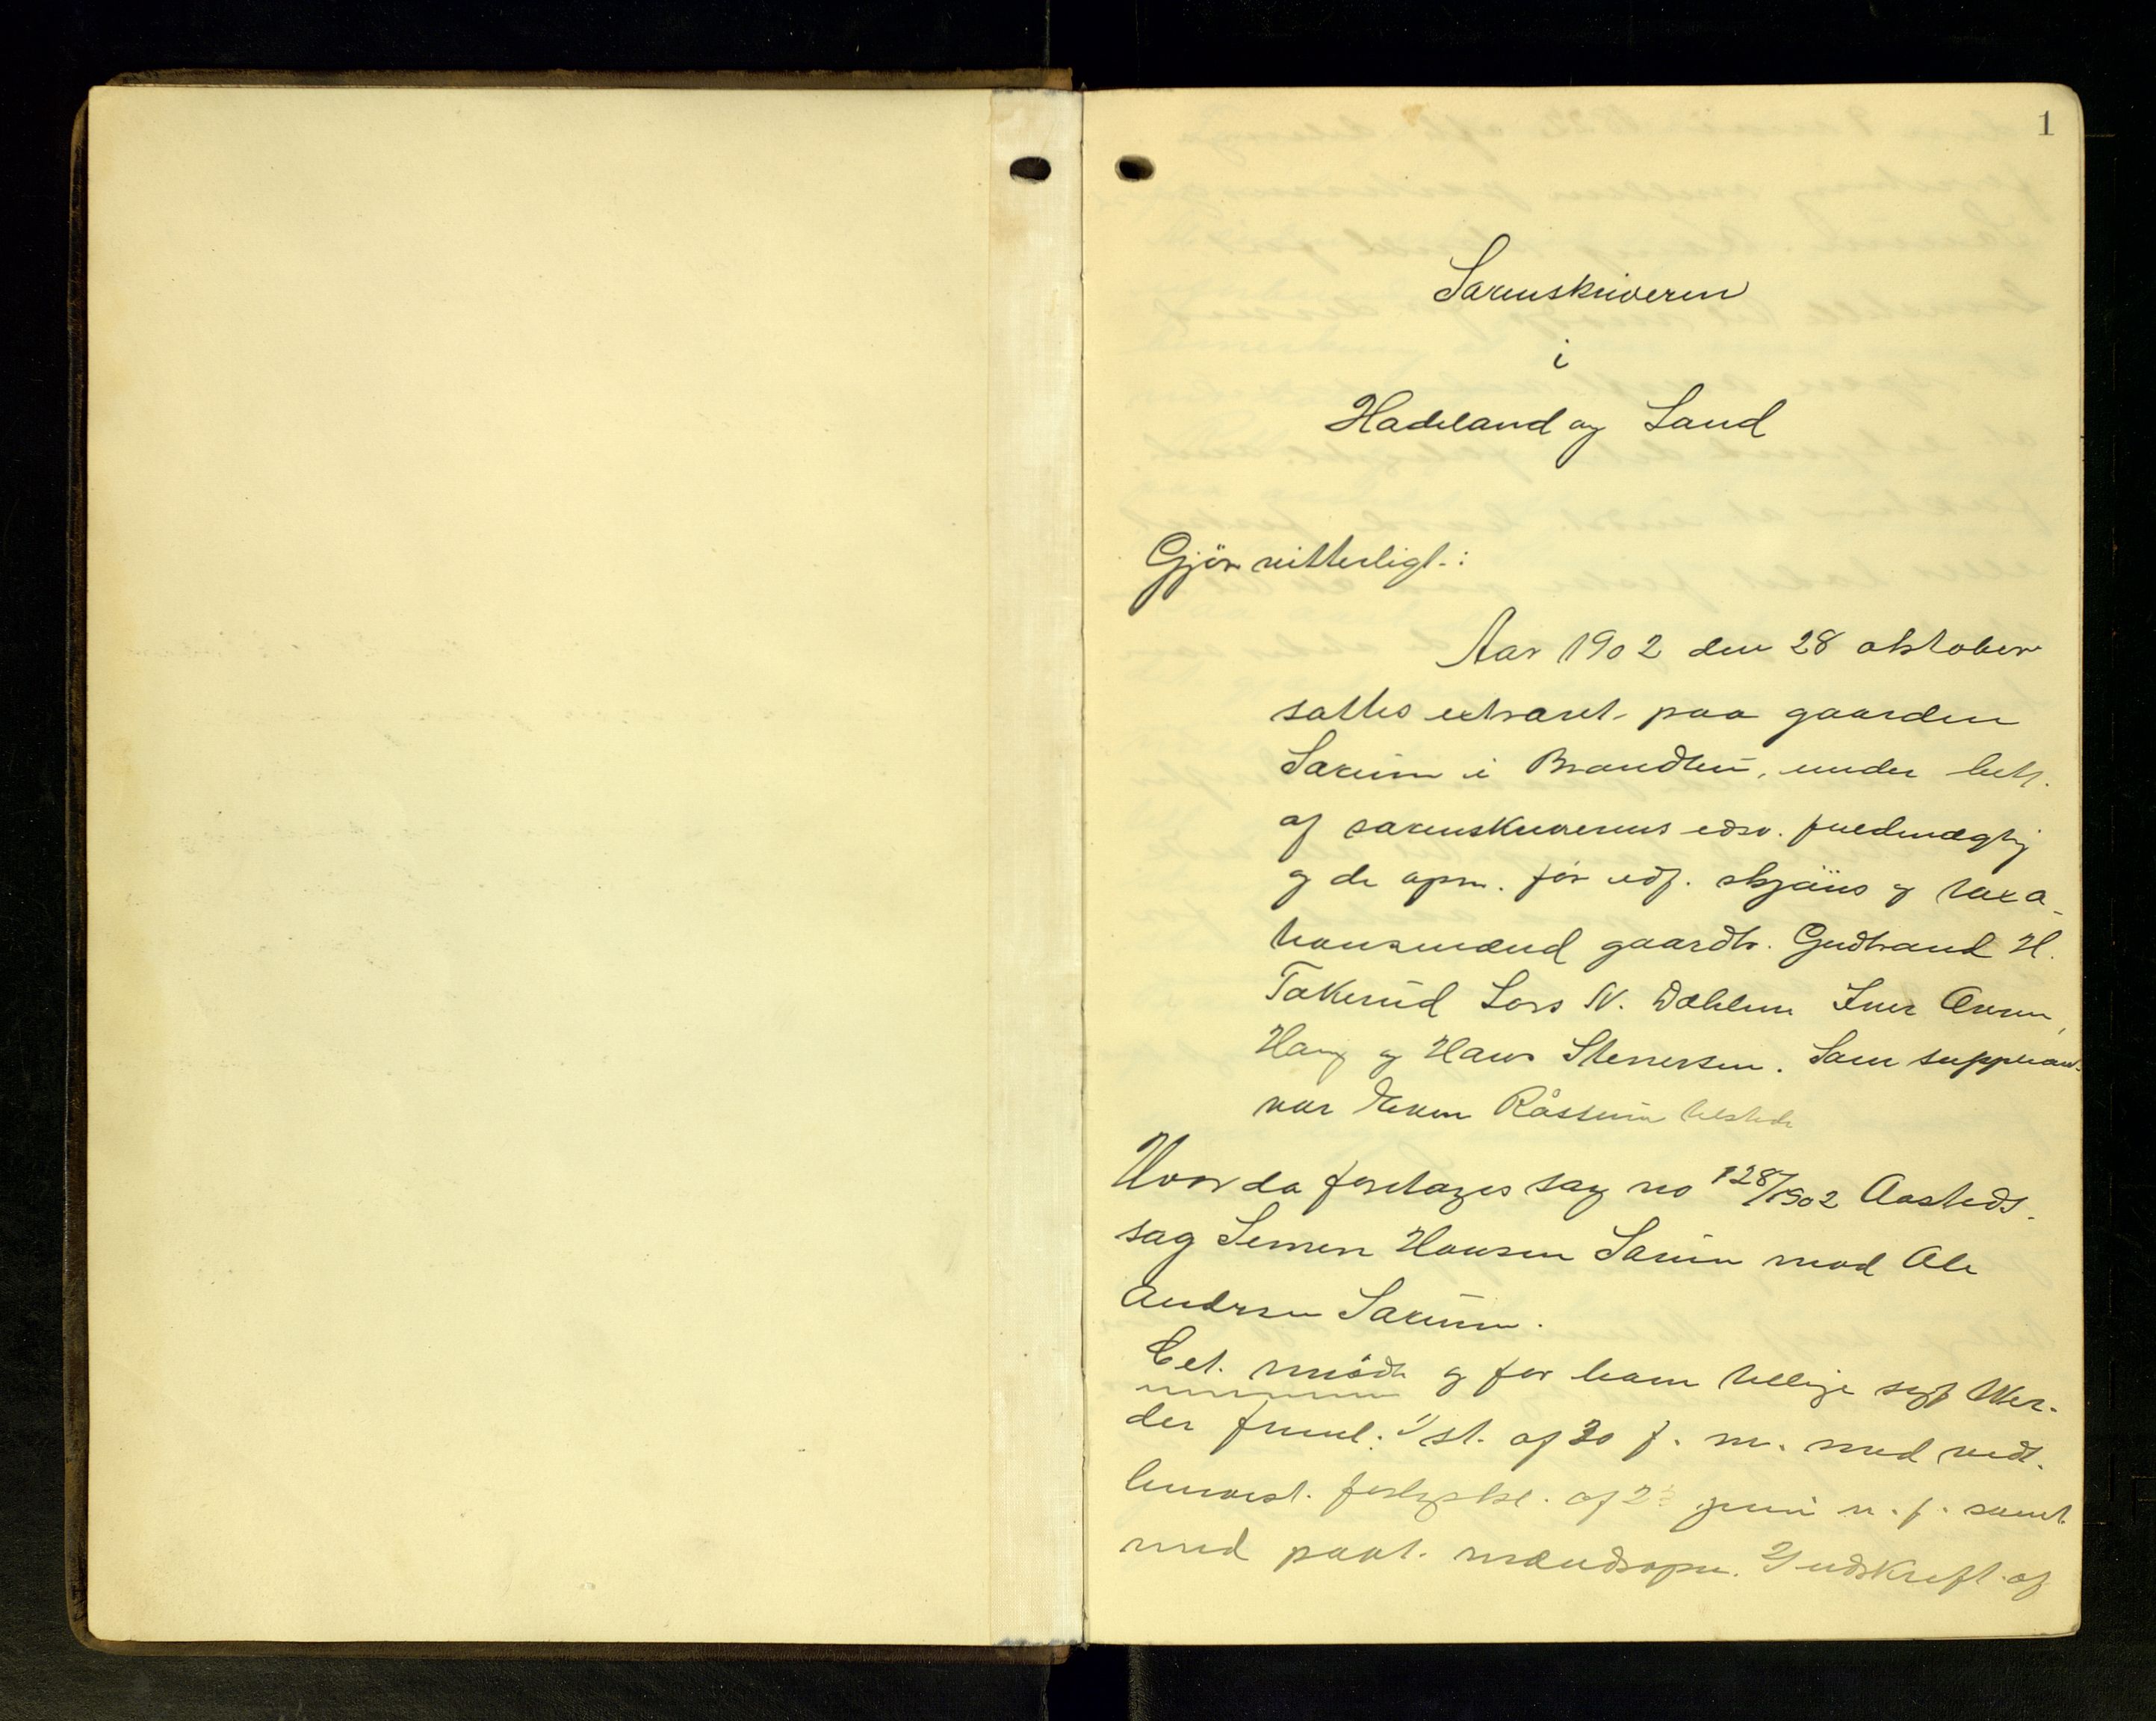 1
Sorenskriveren
i
Hadeland og Land
Gjör vitterligt:
Aar 1902 den 28 oktober
sattes extraret paa gaarden
Sørum i Brandbu, under best.
af sorenskriverens edsv. fuldmægtig
og de opn. för edf. skjöns og taxa-
tionsmænd gaardb. Gudbrand H.
Tokerud Lars N. Dæhlen Iver
Haug og Hans Stenersen. Som suppleant
var Even Råssum tilstede
Hvor da foretages sag no 128/1902 Aasteds-
sag Semen Hansen Sørum mod Ole
Andersen Sørum.
Cit. mödte og for ham tillige sagf.
der freml: 1) st. af 30 f. m. med vedt.
berramt. forlyst. af 23 juni n. f. samt
med paat. mændsopn. 2) udskrift af